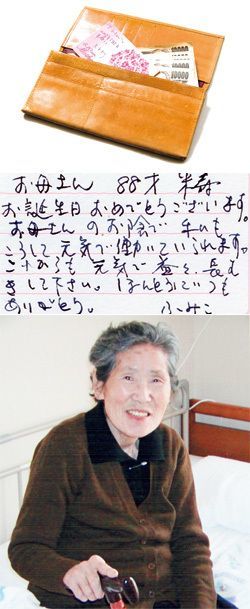 お母さん 88才 米寿
お誕生日おめでとうございます。
お母さんのお陰で 私も
こうして元気で働いていられます。
これからも元気で 長
きして下さい。ほんとうにいつも
ありがとう。 ふみこ